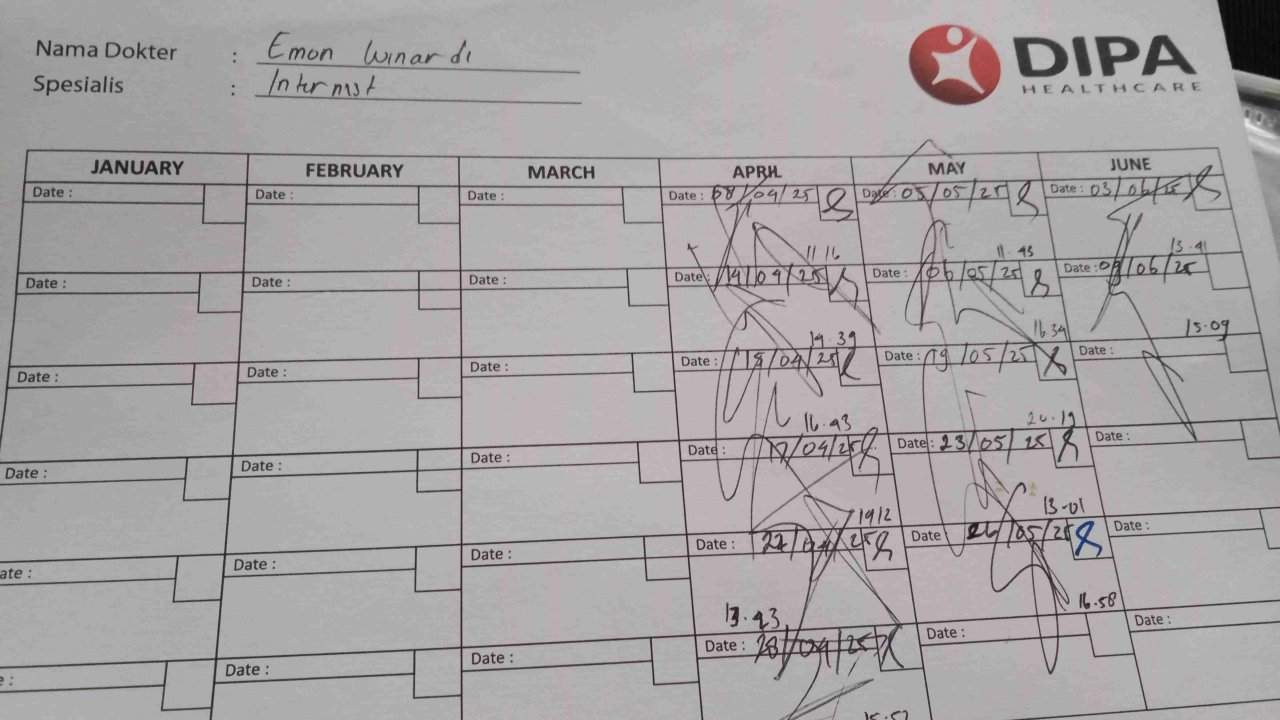 Nama Dokter : Emon Winardi
DIPA
HEALTHCARE
Spesialis : Internist
JANUARY FEBRUARY MARCH APRIL MAY JUNE
Date : Date : Date : Date : 08/04/25 Date : 05/05/25 Date : 03/06/25
11 16 11.43 13.41
Date : Date : Date : Date : 14/04/25 Date : 06/05/25 Date : 09/06/25
14.39 16 34 15.09
Date : Date : Date : Date : 15/04/25 Date : 19/05/25 Date :
16.43 20.19
Date : Date : Date : Date : 17/04/25 Date : 23/05/25 Date :
1912 13-01
ate : Date : Date : Date : 22/04/25 Date 26/05/25 Date :
13.43 16.58
: Date : Date : Date : 28/04/25 Date : Date :